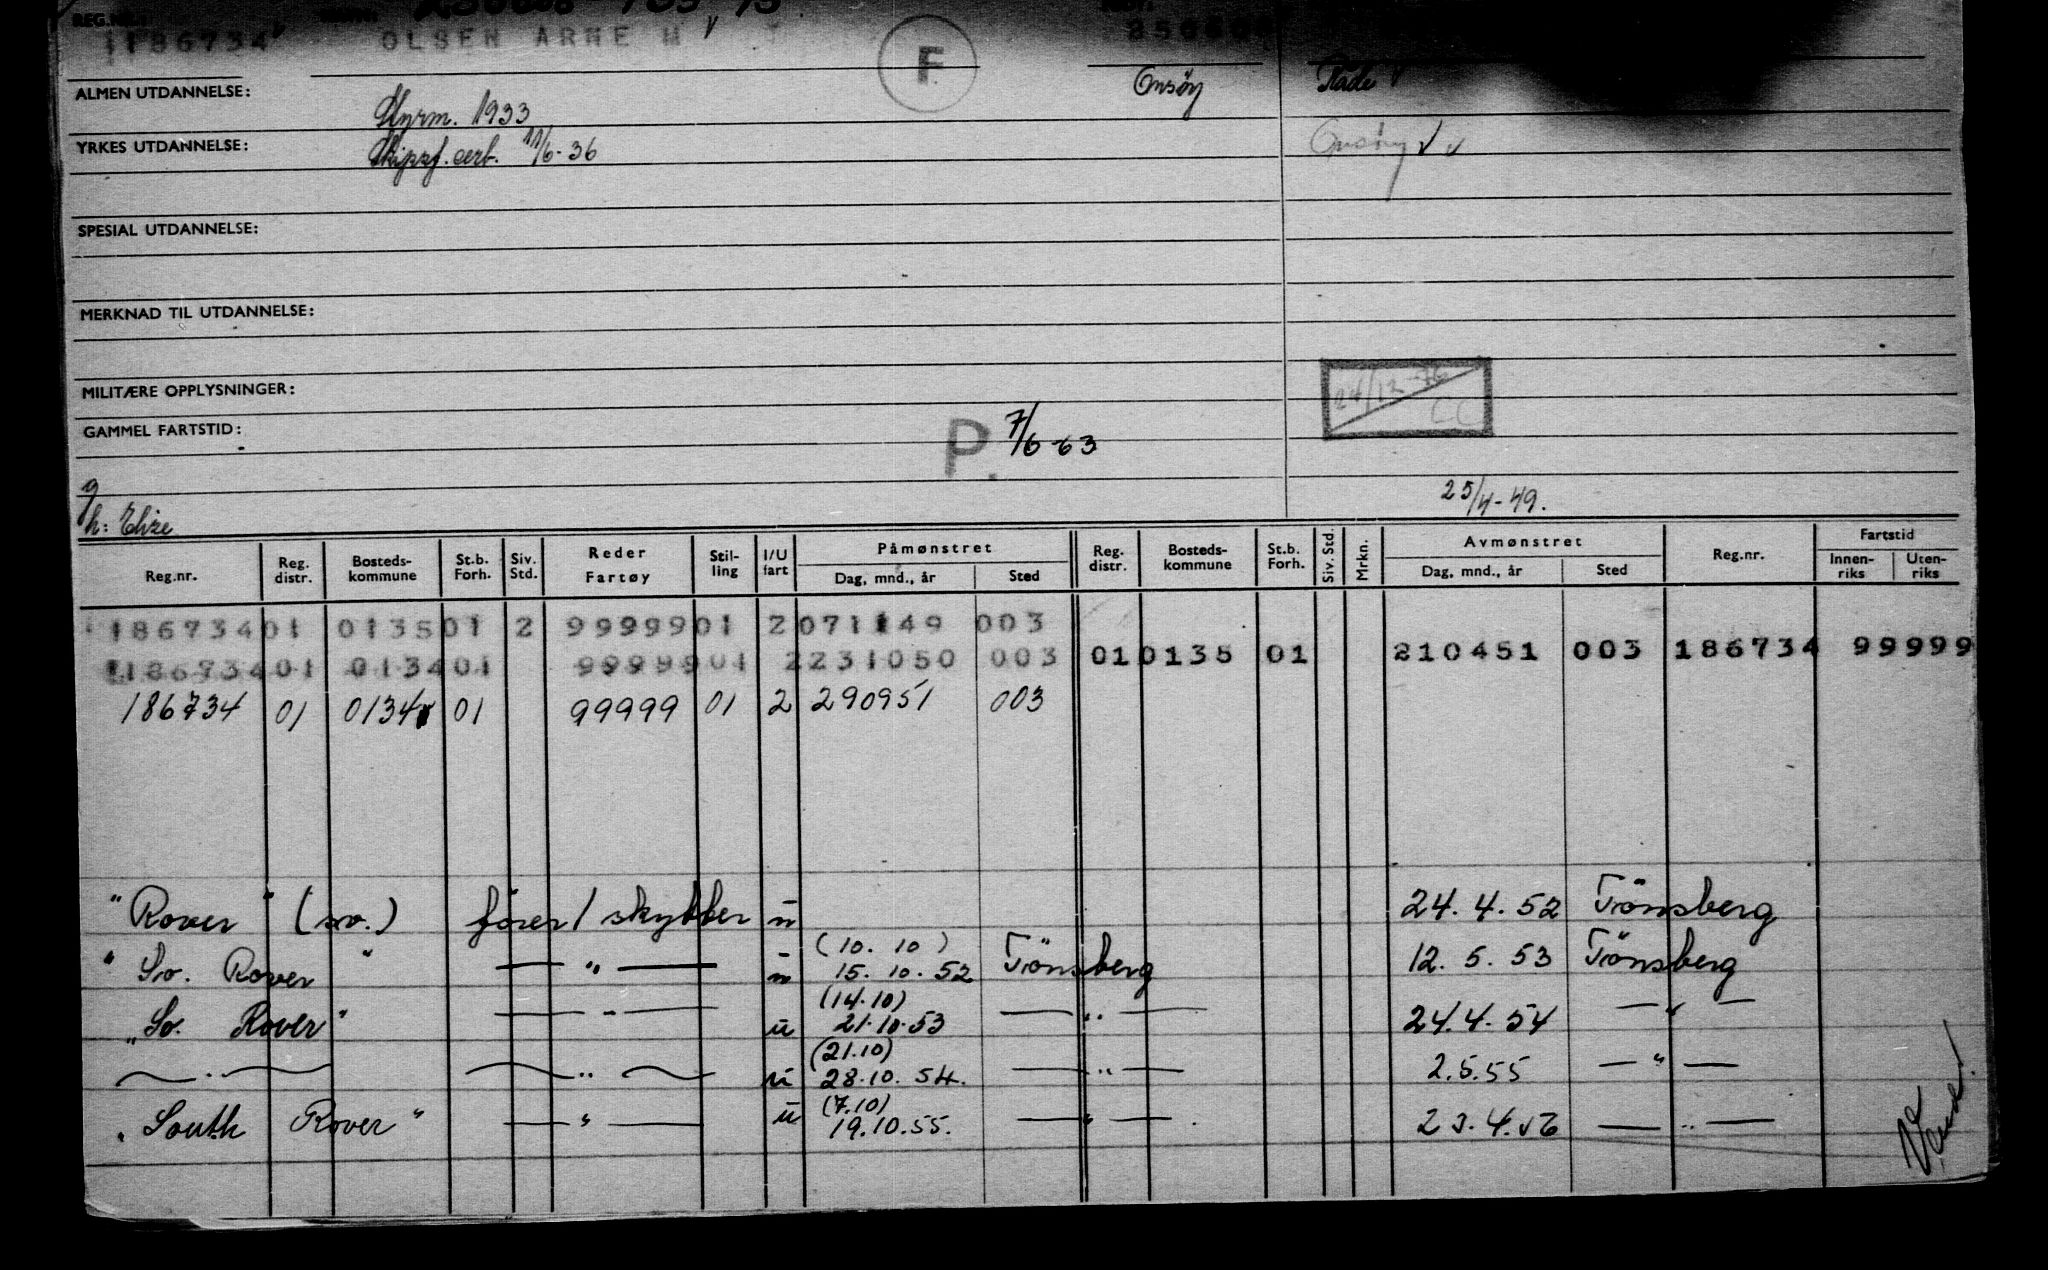 REG.NR.:
186734 OLSEN ARNE M F
ALMEN UTDANNELSE: Onsøy Råde
Styrm. 1933
YRKES UTDANNELSE: Skipsf. cert. 11/6-36 Onsøy
SPESIAL UTDANNELSE:
MERKNAD TIL UTDANNELSE:
MILITÆRE OPPLYSNINGER: 24/12-76
GAMMEL FARTSTID: P. 7/6-63
g/h: Elize 25/4-49.
Reg.nr. Reg. distr. Bosteds-kommune St.b. Forh. Siv. Std. Reder Fartøy Stil-ling I/U fart Påmønstret Dag, mnd., år Sted Reg. distr. Bosteds-kommune St.b. Forh. Siv. Std. Mrkn. Avmønstret Dag, mnd., år Sted Reg.nr. Fartstid Innen-riks Uten-riks
186734 01 0135 01 2 99999 01 2 071149 003
186734 01 0134 01 99999 01 2 231050 003 01 0135 01 210451 003 186734 99999
186734 01 0134 01 99999 01 2 290951 003
"Rover" (sv.) fører/skytter u 24. 4. 52 Tönsberg
(10. 10)
"Sv. Rover" — " — u 15. 10. 52 Tönsberg 12. 5. 53 Tönsberg
(14.10)
"Sv. Rover" — " — u 21.10.53 — " — 24.4.54 — " —
(21.10)
— " — — " — u 28.10.54. — " — 2.5.55 — " —
(7.10)
"South Rover" — " — u 19.10.55. — " — 23.4.56 — " —